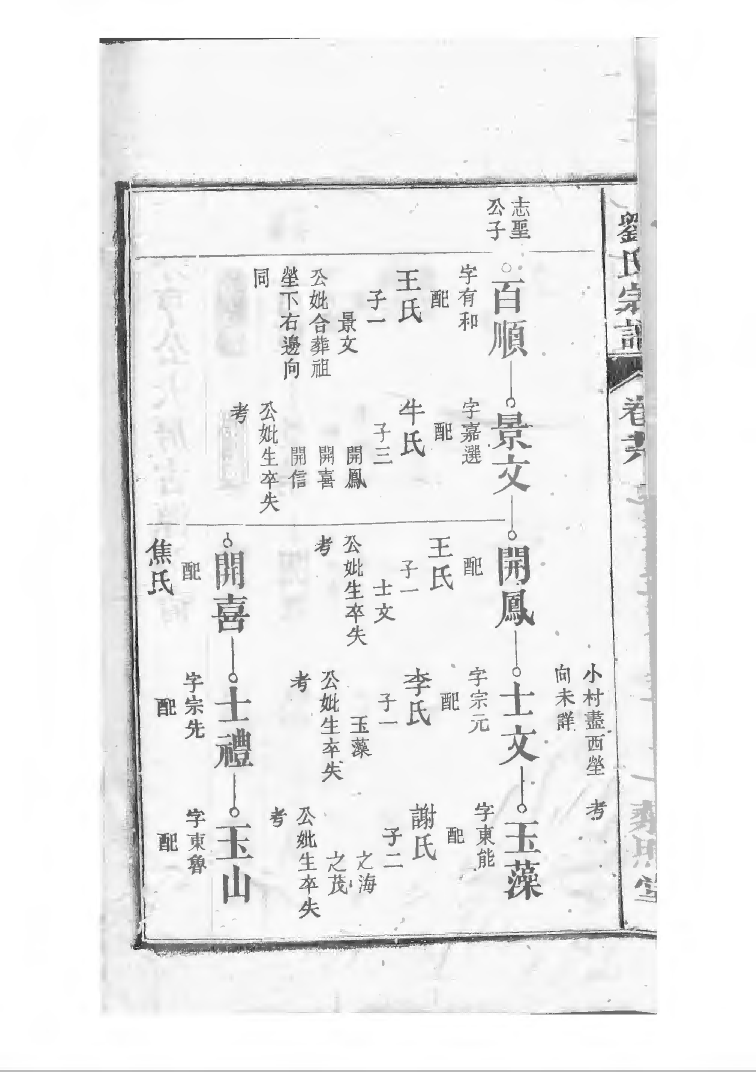 劉氏宗譜
卷
小村盡西塋
考
向未詳
志聖
公子
百順
字有和
配
王氏
子一
景文
公妣合葬祖
塋下右邊向
同
景文
字嘉選
配
牛氏
子三
開鳳
開喜
開信
公妣生卒失
考
開鳳
配
王氏
子一
士文
公妣生卒失
考
士文
字宗元
配
李氏
子一
玉藻
公妣生卒失
考
玉藻
字東能
配
謝氏
子二
之海
之茂
公妣生卒失
考
開喜
配
焦氏
士禮
字宗先
配
玉山
字東魯
配